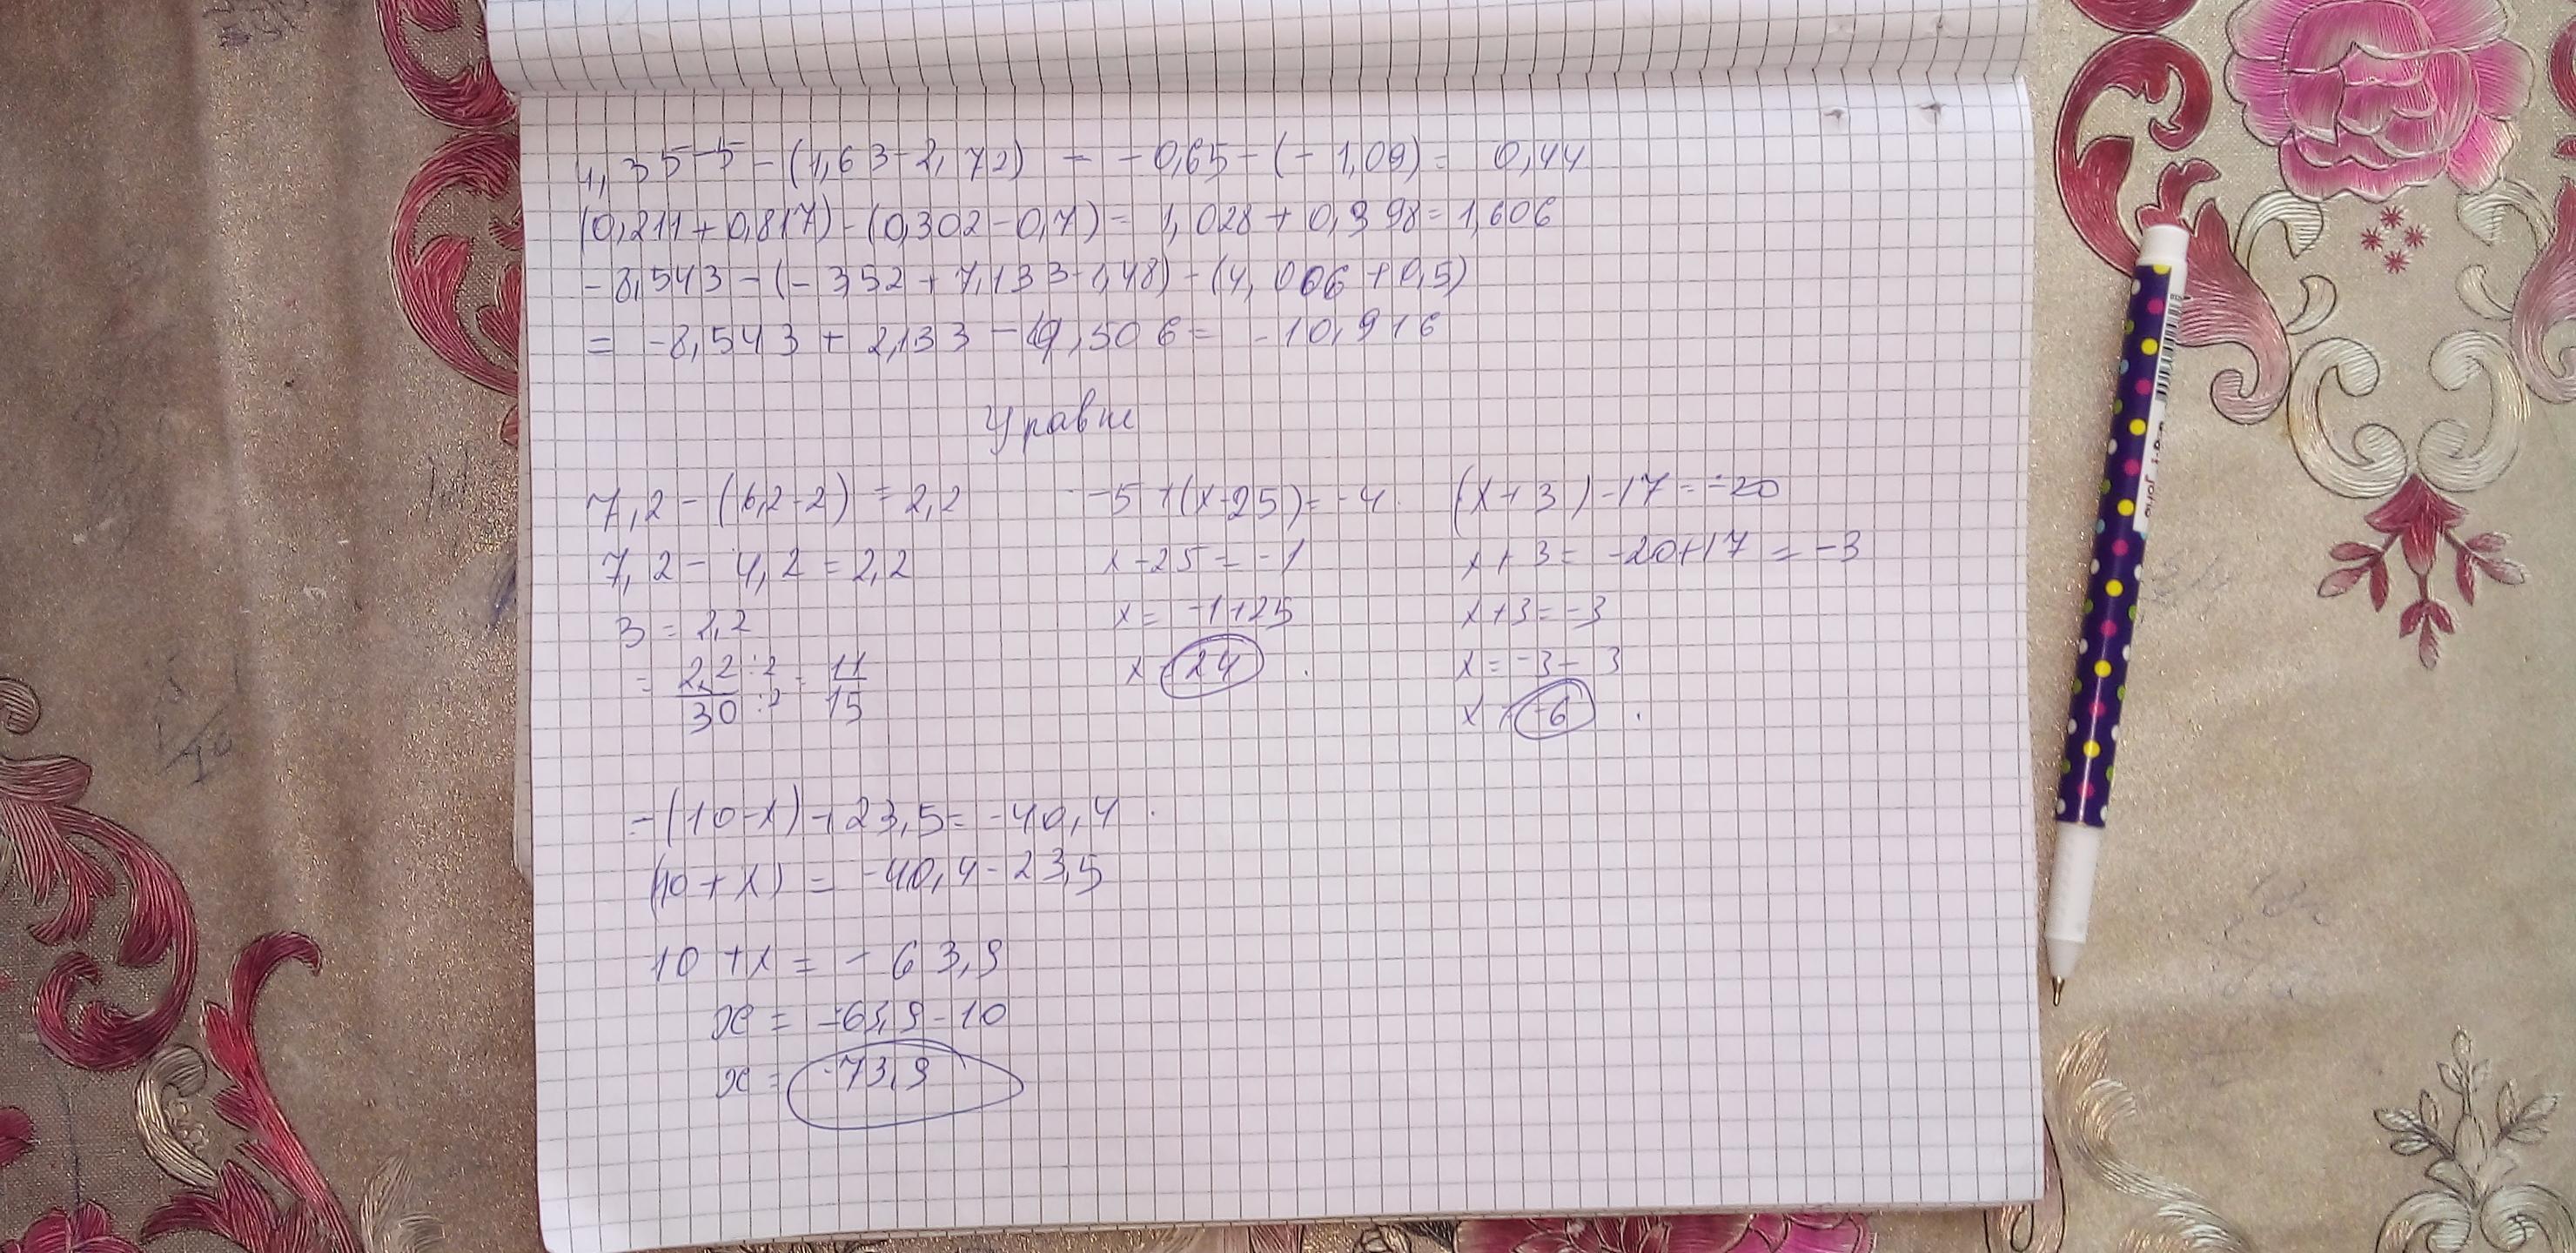 4,35-5-(1,63-2,72) = -0,65-(-1,09)= 0,44
(0,211+0,817)-(0,302-0,7)= 1,028+0,398=1,606
-8,543-(-3,52+7,133-1,48)-(4,006+0,5)
= -8,543+2,133-4,506= -10,916
Уравне
7,2-(6,2-2) =2,2
7,2- 4,2=2,2
3 = 2,2
= 2,2:2/30:2 = 11/15
-5+(x-25)=-4.
x-25=-1
x= -1+25
x=24.
(x+3)-17=-20
x+3= -20+17 =-3
x+3=-3
x=-3-3
x=-6.
-(10-x)+23,5=-40,4.
(10+x) = -40,4-23,5
10+x=-63,9
x = -63,9-10
x = -73,9